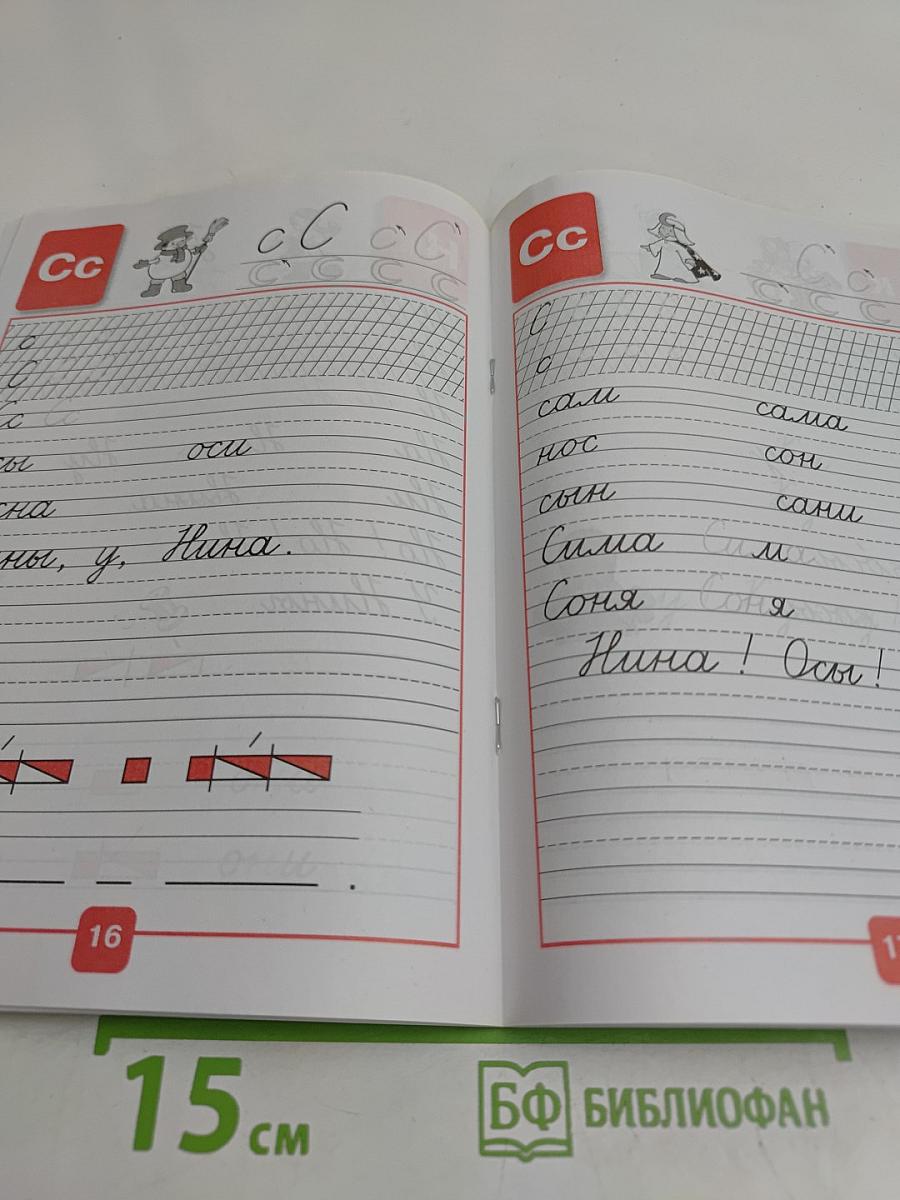 Сс
с С с С
С С С С
с
С
С с
оси
ны, у, Нина.
16
Сс
С с
С С С
С
с
сам сама
нос сон
сын сани
Сима м
Соня я
Нина! Осы!
15 см
БФ БИБЛИОФАН